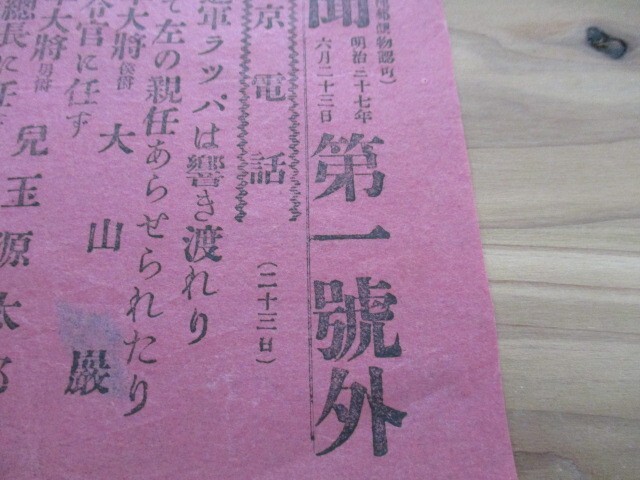 聞
便物認可)
明治三十七年
六月二十三日
第一號外
京電話
(二十三日)
進軍ラッパは響き渡れり
て左の親任あらせられたり
大將侯爵 大山巖
令官に任ず
大將男爵 兒玉源太郎
總長に任ず